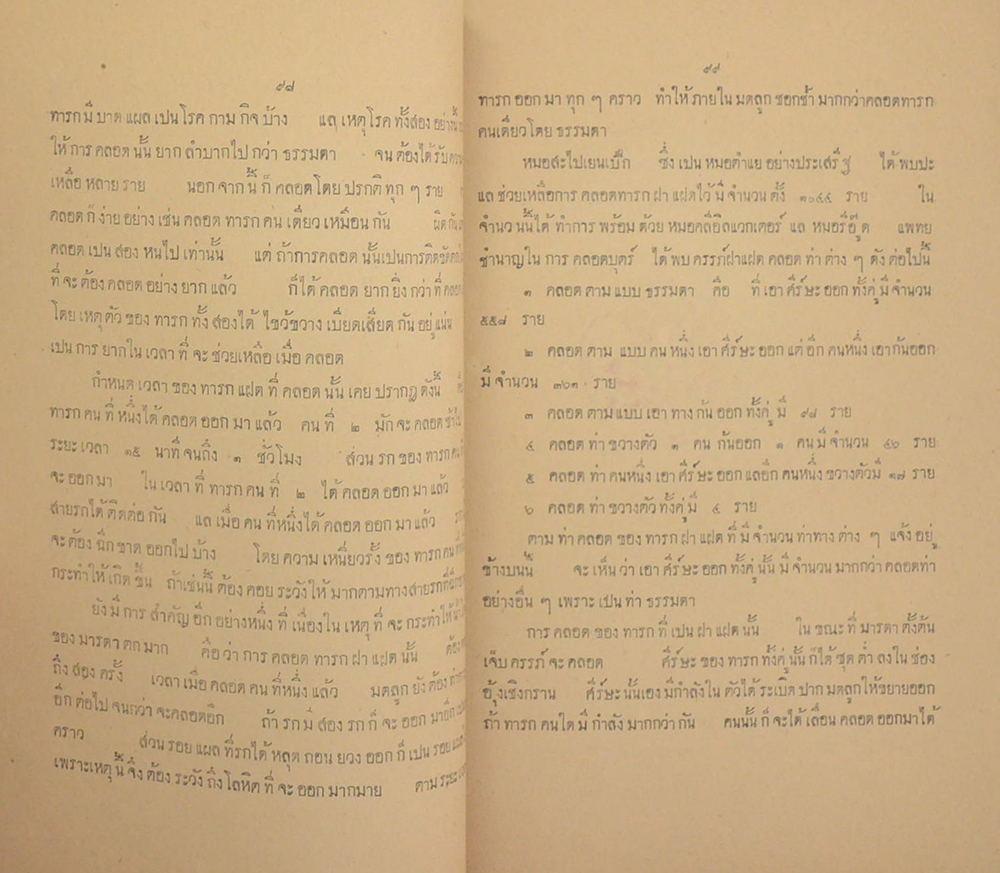 ๙๘
ทารกมี บาด แผล เปน โรค กาม กิจ บ้าง แล เหตุโรค ทั้งสอง อย่างนี้
ให้ การ คลอด นั้น ยาก ลำบากไป กว่า ธรรมดา จน ต้องได้ รับ
เหลือ หลาย ราย นอก จาก นี้ ก็ คลอด โดย ปรกติ ทุก ๆ ราย
คลอด ก็ ง่าย อย่าง เช่น คลอด ทารก คน เดียว เหมือน กัน ผิด กัน
คลอด เปน สอง หนไป เท่านั้น แต่ ถ้าการ คลอด นั้นเปนการติดขัด
ที่ จะ ต้อง คลอด อย่าง ยาก แล้ว ก็ได้ คลอด ยาก ยิ่ง กว่า ที่ คลอด
โดย เหตุ ตัว ของ ทารก ทั้ง สองได้ ไขว้ขวาง เบียดเสียด กัน อยู่ แน่น
เปน การ ยากใน เวลา ที่ จะ ช่วยเหลือ เมื่อ คลอด
กำหนด เวลา ของ ทารก แฝด ที่ คลอด นั้น เคย ปรากฏ ดังนี้
ทารก คน ที่ หนึ่งได้ คลอด ออก มา แล้ว คน ที่ ๒ มัก จะ คลอด ช้า
ระยะ เวลา ๑๕ นาที จนถึง ๑ ชั่วโมง ส่วน รก ของ ทารก
จะ ออก มา ใน เวลา ที่ ทารก คน ที่ ๒ ได้ คลอด ออก มา แล้ว
สายรกได้ ติดต่อ กัน แล เมื่อ คน ที่ หนึ่งได้ คลอด ออก มา แล้ว
จะ ต้อง ฉีก ขาด ออกไป บ้าง โดย ความ เหนี่ยวรั้ง ของ ทารก คน
กระทำ ให้ เกิด ขึ้น ถ้าเช่นนี้ ต้อง คอย ระวังให้ มากตามทางสายรก
ยัง มี การ สำคัญ อีก อย่างหนึ่ง ที่ เนื่องใน เหตุ ที่ จะ กระทำให้
ของ มารดา ตก มาก คือ ว่า การ คลอด ทารก ฝา แฝด นั้น
ถึง สอง ครั้ง เวลา เมื่อ คลอด คน ที่ หนึ่ง แล้ว มดลูก ยัง ต้อง
อีก ต่อไป จนกว่า จะคลอดอีก ถ้า รก มี สอง รก ก็ จะ ออก มา
คราว ส่วน รอย แผล ที่รกได้ หลุด ถอน ยวง ออก ก็ เปน รอย
เพราะเหตุ นี้ จึ่ง ต้อง ระวัง ถึง โลหิต ที่ จะ ออก มากมาย ตาม ระยะ
๙๙
ทารก ออก มา ทุก ๆ คราว ทำให้ ภายใน มดลูก ชอกช้ำ มากกว่าคลอดทารก
คนเดียวโดย ธรรมดา
หมอสะไปเยนเบิ๊ก ซึ่ง เปน หมอตำแย อย่างประเสริฐ ได้ พบปะ
แล ช่วยเหลือการ คลอดทารก ฝา แฝดไว้ มี จำนวน ตั้ง ๑๐๔๔ ราย ใน
จำนวน นั้นได้ ทำการ พร้อม ด้วย หมอคลือิลแวกเตอร์ แล หมอรือู๊ด แพทย
ชำนาญใน การ คลอดบุตร์ ได้ พบ ครรภ์ฝาแฝด คลอด ท่า ต่าง ๆ ดัง ต่อไปนี้
๑ คลอด ตาม แบบ ธรรมดา คือ ที่ เอา ศีร์ษะ ออก ทั้งคู่ มี จำนวน
๕๕๘ ราย
๒ คลอด ตาม แบบ คน หนึ่ง เอา ศีร์ษะ ออก แต่ อีก คนหนึ่ง เอา ก้นออก
มี จำนวน ๓๖๑ ราย
๓ คลอด ตาม แบบ เอา ทาง ก้น ออก ทั้งคู่ มี ๙๘ ราย
๔ คลอด ท่า ขวางตัว ๑ คน ก้นออก ๑ คน มี จำนวน ๔๖ ราย
๕ คลอด ท่า คนหนึ่ง เอา ศีร์ษะ ออก แลอีก คนหนึ่ง ขวางตัวมี ๑๗ ราย
๖ คลอด ท่า ขวางตัว ทั้งคู่ มี ๔ ราย
ตาม ท่า คลอด ของ ทารก ฝา แฝด ที่ มี จำนวน ท่าทาง ต่าง ๆ แจ้ง อยู่
ข้างบนนี้ จะ เห็น ว่า เอา ศีร์ษะ ออก ทั้งคู่ นั้น มี จำนวน มากกว่า คลอดท่า
อย่างอื่น ๆ เพราะ เปน ท่า ธรรมดา
การ คลอด ของ ทารก ที่ เปน ฝา แฝด นั้น ใน ขณะ ที่ มารดา ตั้งต้น
เจ็บ ครรภ์ จะ คลอด ศีร์ษะ ของ ทารก ทั้งคู่ นั้น ก็ได้ ชุด ต่ำ ลงใน ช่อง
อุ้งเชิงกราน ศีร์ษะ นั้นเอง มีกำลังใน ตัวได้ ระเบิด ปาก มดลูกให้ขยายออก
ถ้า ทารก คนใด มี กำลัง มากกว่า กัน คนนั้น ก็ จะได้ เลื่อน คลอด ออกมาได้